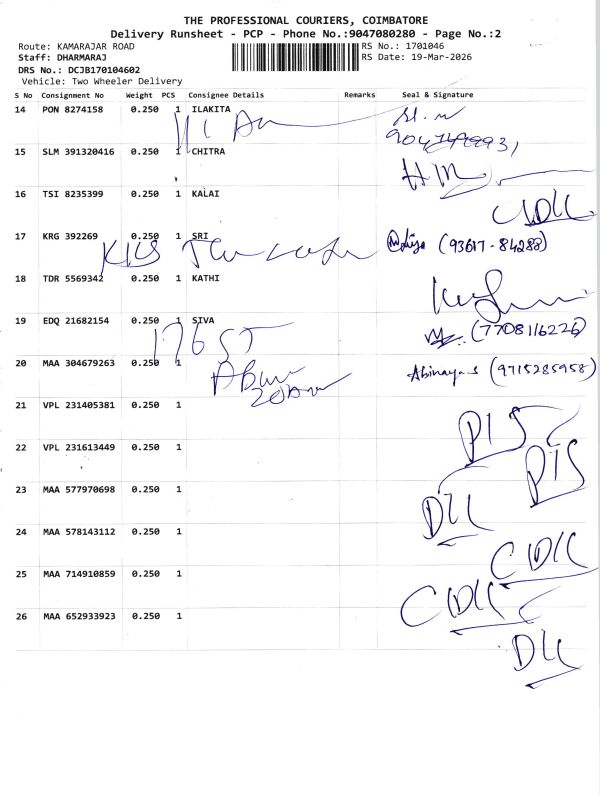 THE PROFESSIONAL COURIERS, COIMBATORE
Delivery Runsheet - PCP - Phone No.:9047080280 - Page No.:2
Route: KAMARAJAR ROAD RS No.: 1701046
Staff: DHARMARAJ RS Date: 19-Mar-2026
DRS No.: DCJB170104602
Vehicle: Two Wheeler Delivery
S No Consignment No Weight PCS Consignee Details Remarks Seal & Signature
14 PON 8274158 0.250 1 ILAKITA
15 SLM 391320416 0.250 1 CHITRA
16 TSI 8235399 0.250 1 KALAI
17 KRG 392269 0.250 1 SRI
(93617-84288)
18 TDR 5569342 0.250 1 KATHI
19 EDQ 21682154 0.250 1 SIVA
176 ST
(7708116226)
20 MAA 304679263 0.250 1
Abinaya S (9715285958)
21 VPL 231405381 0.250 1
PTS
22 VPL 231613449 0.250 1
PTS
23 MAA 577970698 0.250 1
24 MAA 578143112 0.250 1
25 MAA 714910859 0.250 1
26 MAA 652933923 0.250 1